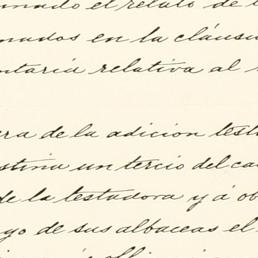 nnado el relato de
nados en la cláusu
ntaria relativa al
era de la adicion test
estina un tercio del ca
de la testadora y á ob
go de sus albaceas el